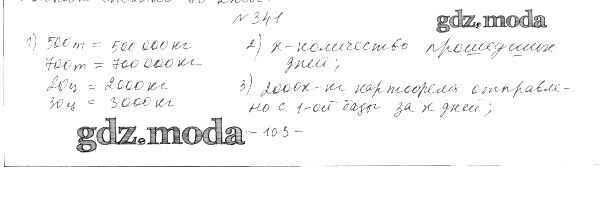 №341
gdz.moda
1) 500т = 500 000 кг
700т = 700 000 кг
20ц = 2000 кг
30ц = 3000 кг
2) x - количество прошедших
дней;
3) 2000x - кг картофеля отправле-
но с 1-ой базы за x дней;
gdz.moda
- 103 -